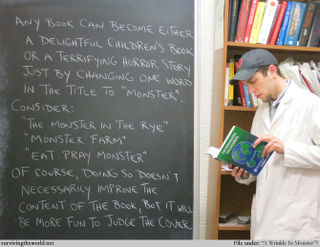 ANY BOOK CAN BECOME EITHER
A DELIGHTFUL CHILDREN'S BOOK
OR A TERRIFYING HORROR STORY
JUST BY CHANGING ONE WORD
IN THE TITLE TO "MONSTER".
CONSIDER:
"THE MONSTER IN THE RYE"
"MONSTER FARM"
"EAT PRAY MONSTER"
OF COURSE, DOING SO DOESN'T
NECESSARILY IMPROVE THE
CONTENT OF THE BOOK, BUT IT WILL
BE MORE FUN TO JUDGE THE COVER.
survivingtheworld.net
File under: "A Wrinkle In Monster"?